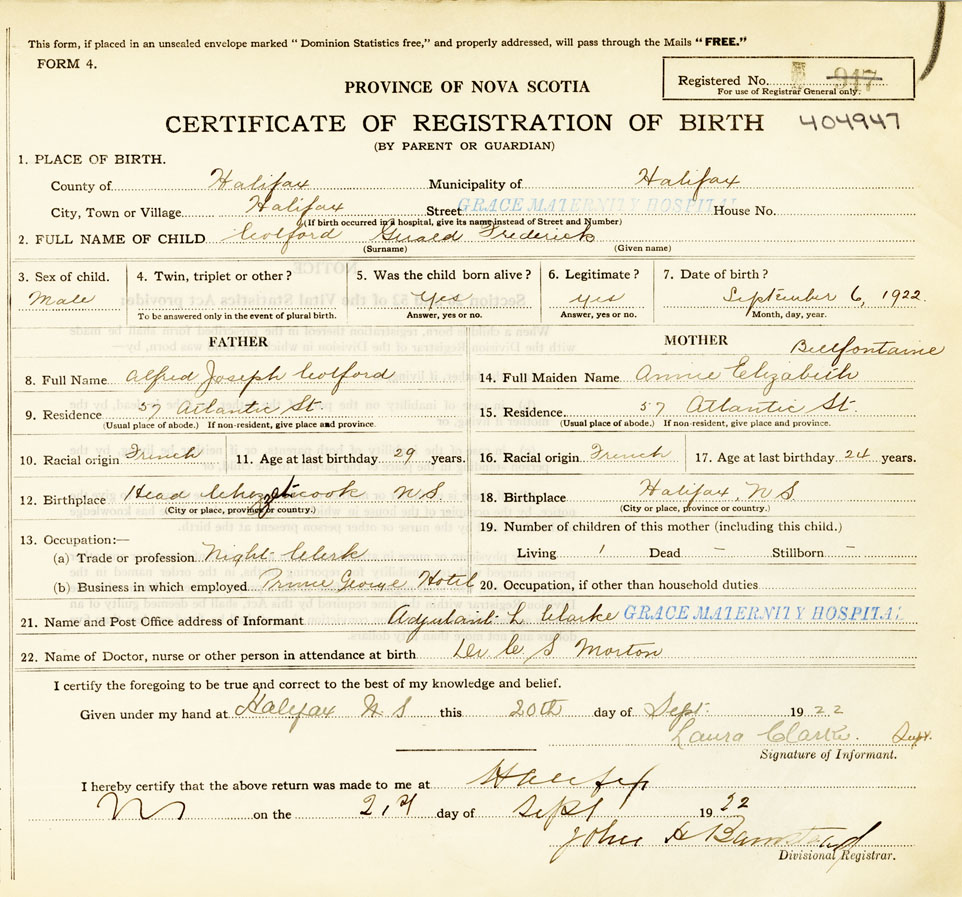 This form, if placed in an unsealed envelope marked " Dominion Statistics free," and properly addressed, will pass through the Mails "FREE."
FORM 4.
Registered No. 917
For use of Registrar General only.
PROVINCE OF NOVA SCOTIA
CERTIFICATE OF REGISTRATION OF BIRTH 404947
(BY PARENT OR GUARDIAN)
1. PLACE OF BIRTH.
County of Halifax Municipality of Halifax
City, Town or Village Halifax Street GRACE MATERNITY HOSPITAL House No.
(If birth occurred in a hospital, give its name instead of Street and Number)
2. FULL NAME OF CHILD Colford Gerald Frederick
(Surname) (Given name)
3. Sex of child. 4. Twin, triplet or other? 5. Was the child born alive? 6. Legitimate? 7. Date of birth?
Male Yes Yes September 6, 1922.
To be answered only in the event of plural birth. Answer, yes or no. Answer, yes or no. Month, day, year.
FATHER MOTHER Bellfontaine
8. Full Name Alfred Joseph Colford 14. Full Maiden Name Annie Elizabeth
9. Residence 57 Atlantic St. 15. Residence 57 Atlantic St.
(Usual place of abode.) If non-resident, give place and province. (Usual place of abode.) If non-resident, give place and province.
10. Racial origin French 11. Age at last birthday 29 years. 16. Racial origin French 17. Age at last birthday 24 years.
12. Birthplace Head Chezzetcook N.S. 18. Birthplace Halifax, N S
(City or place, province or country.) (City or place, province or country.)
19. Number of children of this mother (including this child.)
13. Occupation:—
(a) Trade or profession Night Clerk Living 1 Dead – Stillborn –
(b) Business in which employed Prince George Hotel 20. Occupation, if other than household duties
21. Name and Post Office address of Informant Adjutant L Clarke GRACE MATERNITY HOSPITAL
22. Name of Doctor, nurse or other person in attendance at birth Dr C S Morton
I certify the foregoing to be true and correct to the best of my knowledge and belief.
Given under my hand at Halifax N S this 20th day of Sept. 1922
Laura Clarke. Supt.
Signature of Informant.
I hereby certify that the above return was made to me at Halifax
on the 21st day of Sept 1922
John H Barnstead
Divisional Registrar.